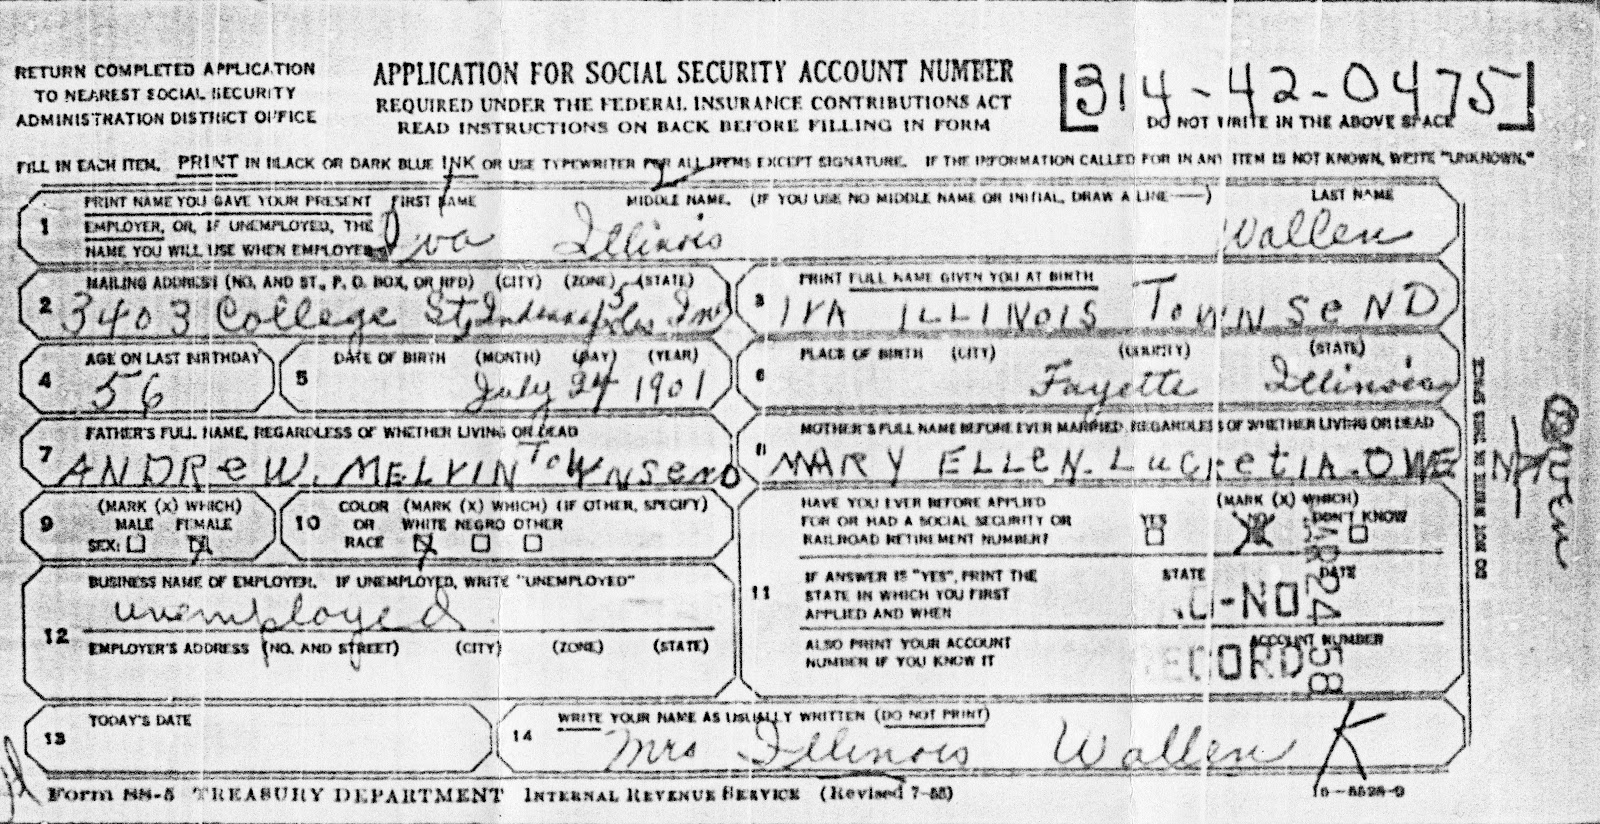 RETURN COMPLETED APPLICATION
TO NEAREST SOCIAL SECURITY
ADMINISTRATION DISTRICT OFFICE
APPLICATION FOR SOCIAL SECURITY ACCOUNT NUMBER
REQUIRED UNDER THE FEDERAL INSURANCE CONTRIBUTIONS ACT
READ INSTRUCTIONS ON BACK BEFORE FILLING IN FORM
[314-42-0475]
DO NOT WRITE IN THE ABOVE SPACE
FILL IN EACH ITEM. PRINT IN BLACK OR DARK BLUE INK OR USE TYPEWRITER FOR ALL ITEMS EXCEPT SIGNATURE. IF THE INFORMATION CALLED FOR IN ANY ITEM IS NOT KNOWN, WRITE "UNKNOWN."
1 PRINT NAME YOU GAVE YOUR PRESENT
EMPLOYER, OR, IF UNEMPLOYED, THE
NAME YOU WILL USE WHEN EMPLOYED
FIRST NAME MIDDLE NAME. (IF YOU USE NO MIDDLE NAME OR INITIAL, DRAW A LINE—) LAST NAME
Iva Illinois Wallen
2 MAILING ADDRESS (NO. AND ST., P. O. BOX, OR RFD) (CITY) (ZONE) (STATE)
3403 College St, Indianapolis 5 Ind
3 PRINT FULL NAME GIVEN YOU AT BIRTH
IVA ILLINOIS TOWNSeND
4 AGE ON LAST BIRTHDAY
56
5 DATE OF BIRTH (MONTH) (DAY) (YEAR)
July 24 1901
6 PLACE OF BIRTH (CITY) (COUNTY) (STATE)
Fayette Illinois
7 FATHER'S FULL NAME, REGARDLESS OF WHETHER LIVING OR DEAD
ANDReW. MELVIN TOWNSeND
8 MOTHER'S FULL NAME BEFORE EVER MARRIED, REGARDLESS OF WHETHER LIVING OR DEAD
MARY ELLeN. LuCReTIA. OWEN
Owen
9 (MARK (X) WHICH)
MALE FEMALE
SEX: X
10 COLOR (MARK (X) WHICH) (IF OTHER, SPECIFY)
OR WHITE NEGRO OTHER
RACE X
11 HAVE YOU EVER BEFORE APPLIED
FOR OR HAD A SOCIAL SECURITY OR
RAILROAD RETIREMENT NUMBER?
(MARK (X) WHICH)
YES NO DON'T KNOW
X
IF ANSWER IS "YES", PRINT THE
STATE IN WHICH YOU FIRST
APPLIED AND WHEN
STATE DATE
-NO
ALSO PRINT YOUR ACCOUNT
NUMBER IF YOU KNOW IT
ACCOUNT NUMBER
RECORD
MAR 24 58
12 BUSINESS NAME OF EMPLOYER. IF UNEMPLOYED, WRITE "UNEMPLOYED"
unemployed
EMPLOYER'S ADDRESS (NO. AND STREET) (CITY) (ZONE) (STATE)
13 TODAY'S DATE
14 WRITE YOUR NAME AS USUALLY WRITTEN (DO NOT PRINT)
Mrs Illinois Wallen K
DO NOT WRITE IN THIS SPACE
Form SS-5 TREASURY DEPARTMENT INTERNAL REVENUE SERVICE (Revised 7-55)